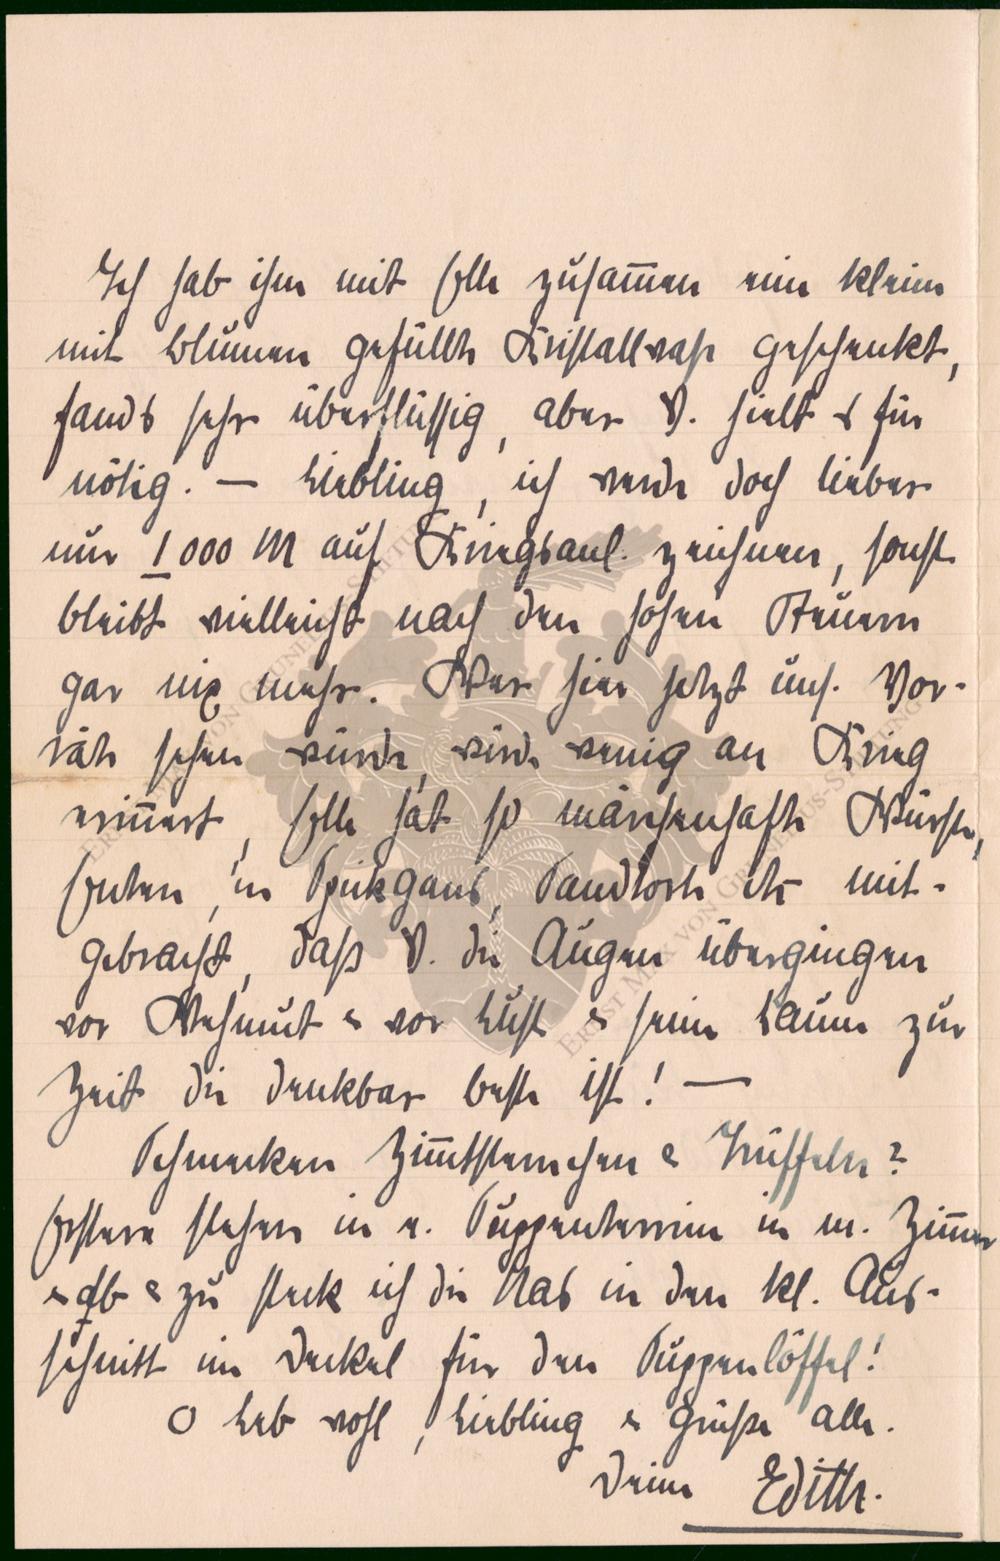 Ich hab ihm mit Elle zusam̅en eine kleine
mit Blumen gefüllte Kristallvase geschenkt,
fands sehr überflüssig, aber V. hielt es für
nötig. — Liebling, ich werde doch lieber
nur 1000 M auf Kriegsanl. zeichnen, sonst
bleibt vielleicht nach den hohen Steuern
gar nix mehr. Wer hier jetzt uns. Vor-
räte sehen würde, wird wenig an Krieg
erin̅ert, Elle hat so märchenhafte Würste,
Enten, 'ne Spickgans, Sandtorte etc mit-
gebracht, daß V. die Augen übergingen
vor Wehmut & vor Lust & seine Laune zur
Zeit die denkbar beste ist! —
Schmecken Zim̅tsternchen & Trüffeln?
Erstere stehen in e. Puppenterrine in m. Zim̅er
& ab & zu steck ich die Nas in den kl. Aus-
schnitt im Deckel für den Puppenlöffel!
O Leb wohl, Liebling & Grüße alle.
Deine Edith.